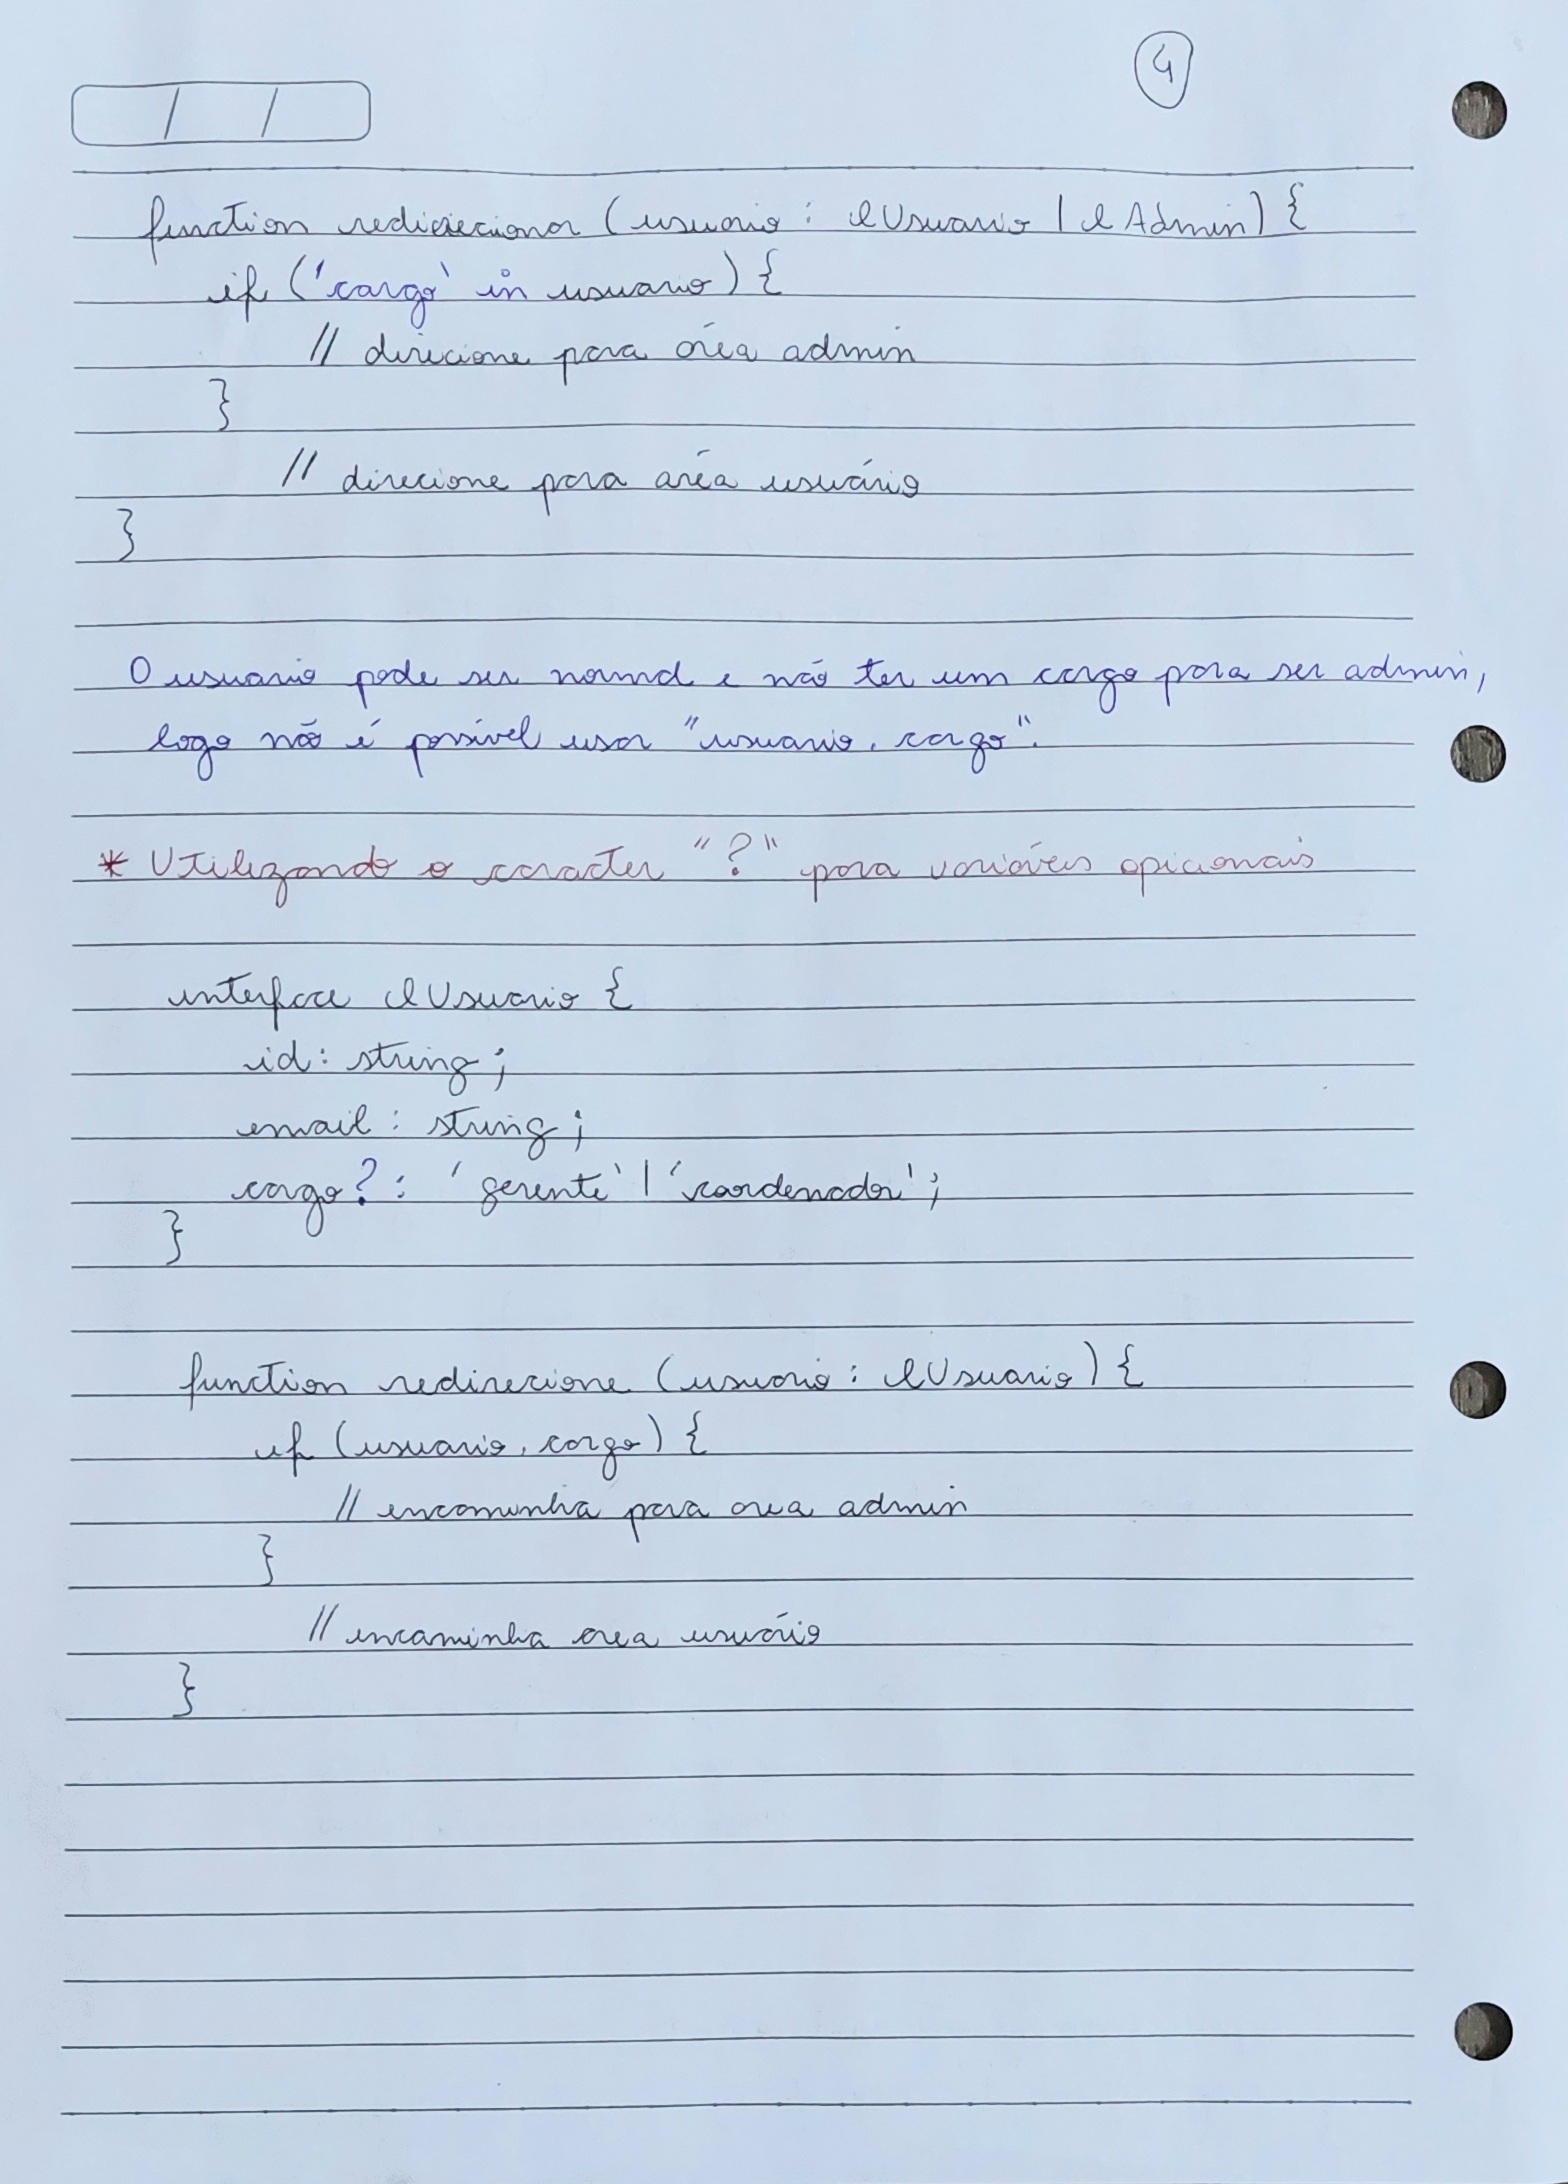 4
/ /
function redirecionar (usuario : IUsuario | IAdmin) {
if ('cargo' in usuario) {
// direcione para área admin
}
// direcione para aréa usuário
}
O usuario pode ser normal e não ter um cargo para ser admin,
logo não é possível usar "usuario.cargo".
* Utilizando o caracter "?" para variáveis opicionais
interface IUsuario {
id: string;
email: string;
cargo?: 'gerente' | 'coordenador';
}
function redirecione (usuario: IUsuario) {
if (usuario.cargo) {
// encaminha para area admin
}
// encaminha area usuário
}